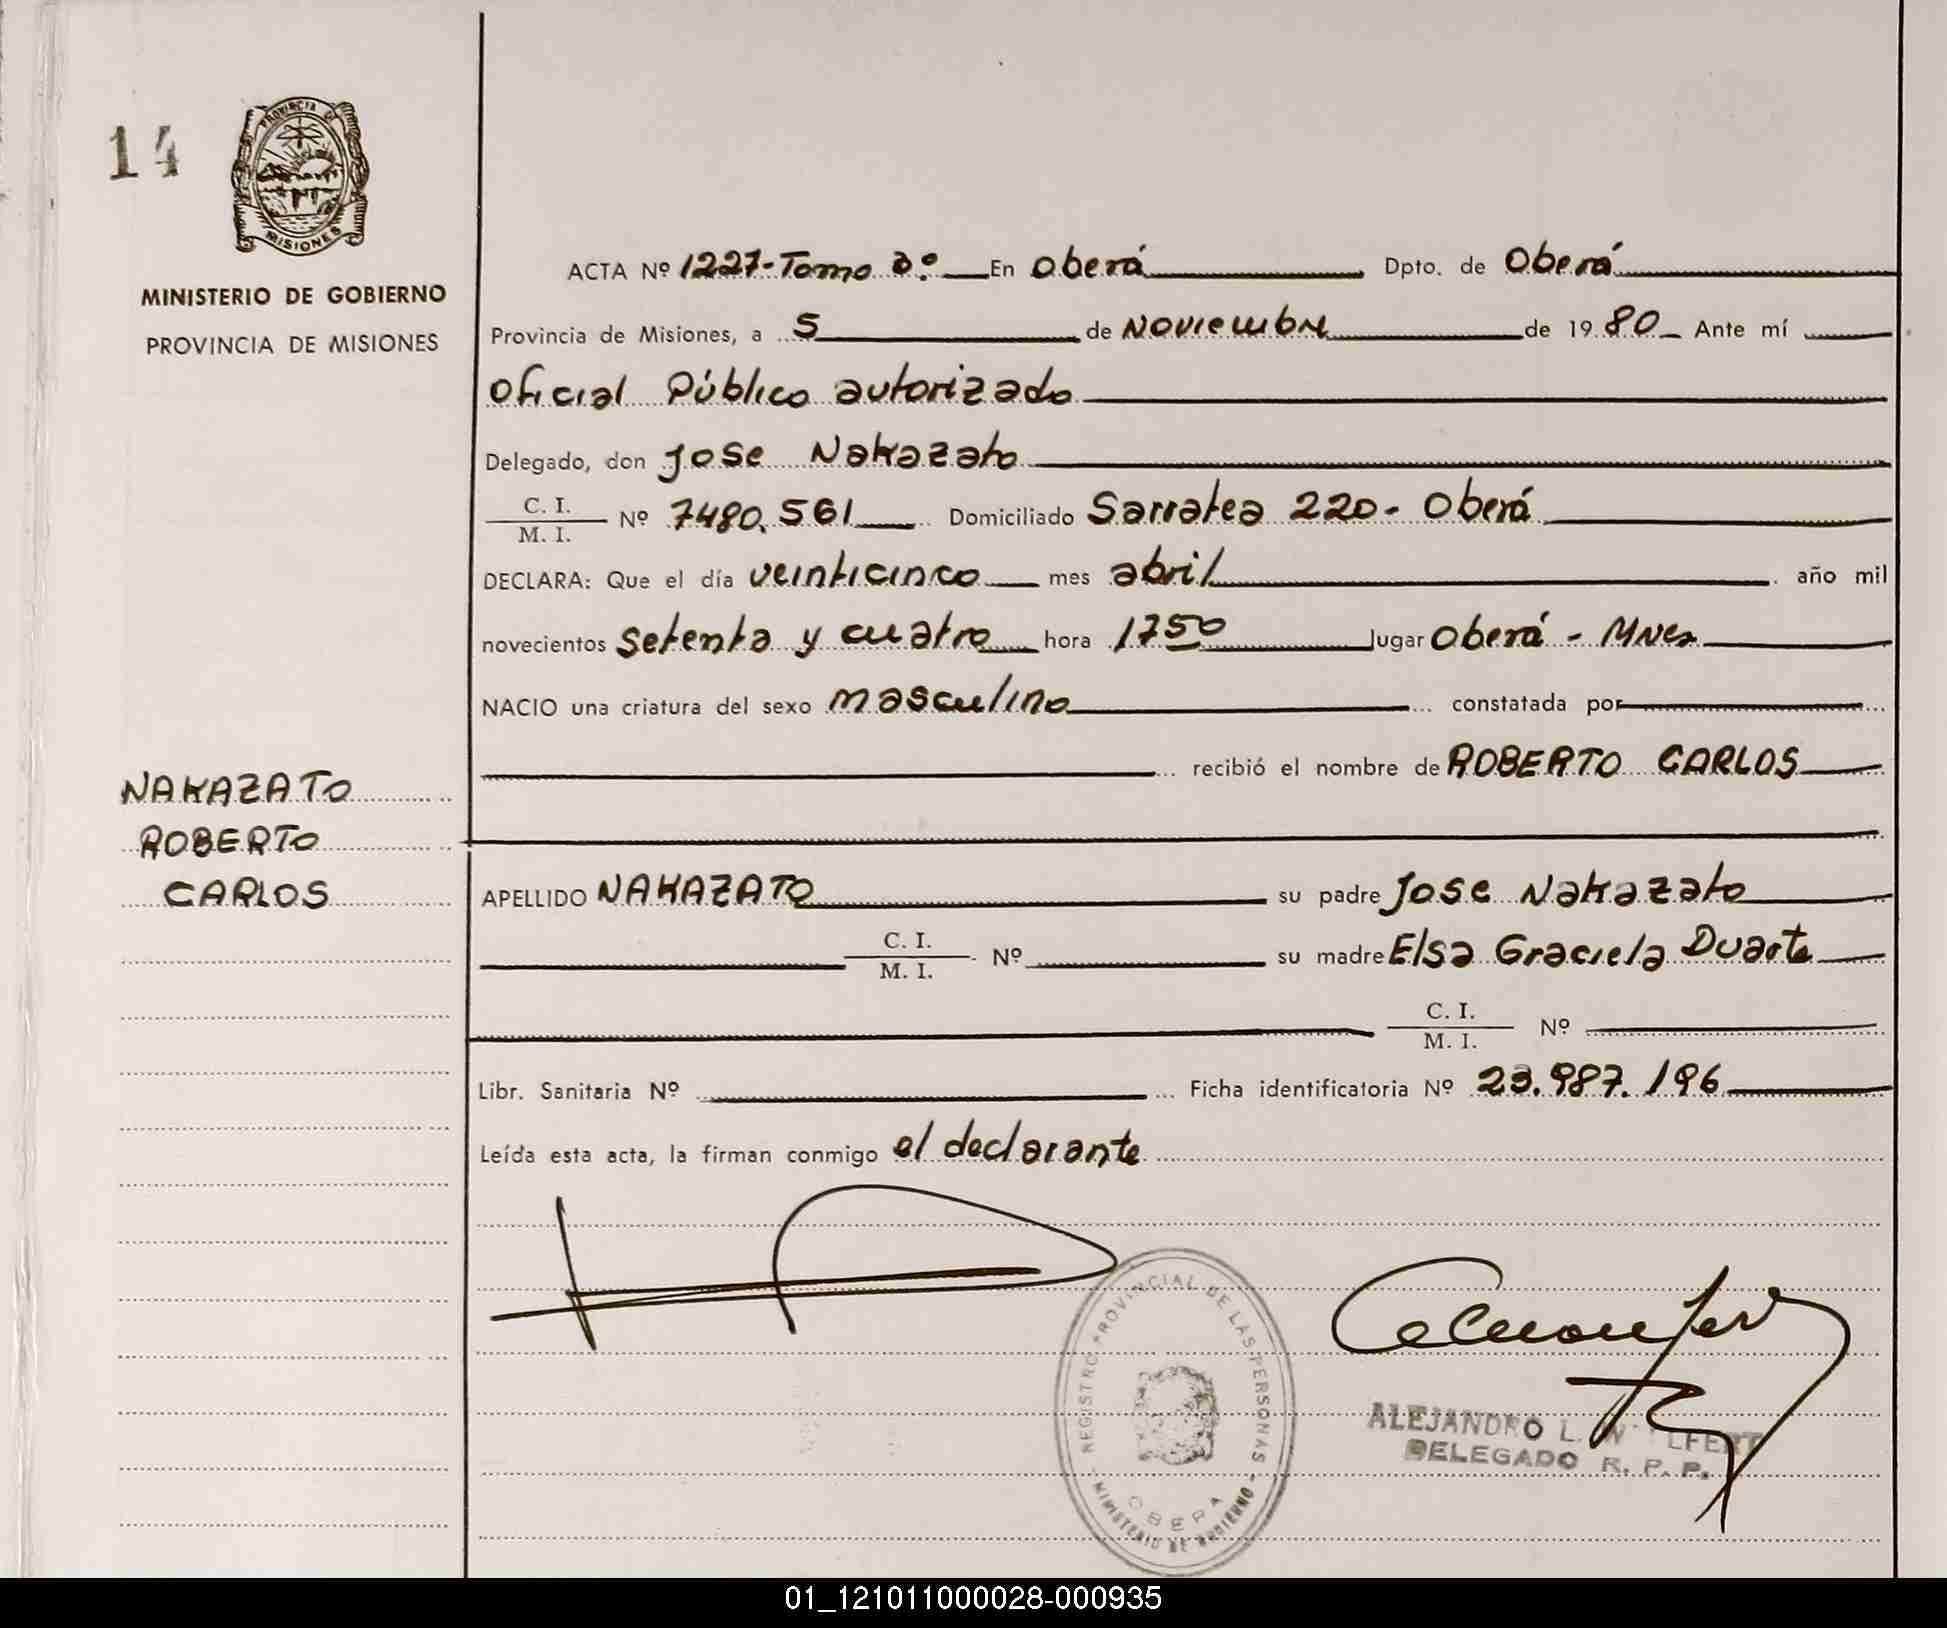 14
PROVINCIA DE
MISIONES
MINISTERIO DE GOBIERNO
PROVINCIA DE MISIONES
NAKAZATO
ROBERTO
CARLOS
ACTA Nº 1227-Tomo 2º En Oberá Dpto. de Oberá
Provincia de Misiones, a 5 de Noviembre de 1980 Ante mí
Oficial Público autorizado
Delegado, don Jose Nakazato
C. I.
M. I. Nº 7480.561 Domiciliado Sarratea 220- Oberá
DECLARA: Que el día veinticinco mes abril año mil
novecientos setenta y cuatro hora 1750 lugar Oberá - Mnes
NACIO una criatura del sexo masculino constatada por
recibió el nombre de ROBERTO CARLOS
APELLIDO NAKAZATO su padre Jose Nakazato
C. I.
M. I. Nº su madre Elsa Graciela Duarte
C. I.
M. I. Nº
Libr. Sanitaria Nº Ficha identificatoria Nº 23.987.196
Leída esta acta, la firman conmigo el declarante
REGISTRO PROVINCIAL DE LAS PERSONAS
OBERA
MINISTERIO DE GOBIERNO
ALEJANDRO L.
DELEGADO R. P. P.
01_121011000028-000935